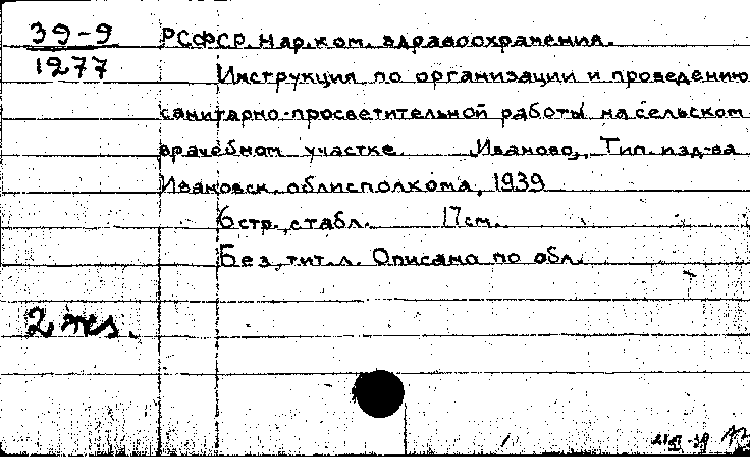 39-9
1277
РСФСР. Нар. ком. здравоохранения.
Инструкция по организации и проведению
санитарно-просветительной работы на сельском
врачебном участке. Иваново, Тип. изд-ва
Ивановск. облисполкома, 1939
6 стр. с табл. 17 см.
Без тит. л. Описано по обл.
2 экз.